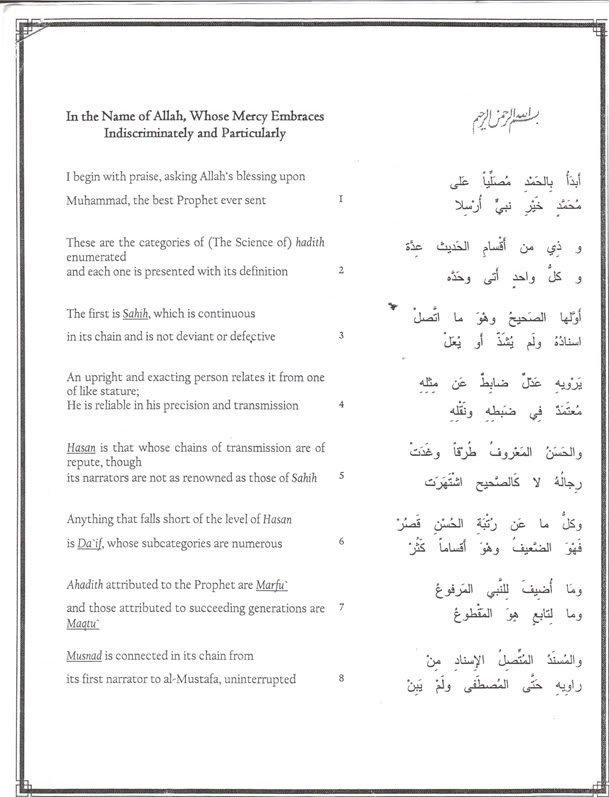 In the Name of Allah, Whose Mercy Embraces
Indiscriminately and Particularly
بسم الله الرحمن الرحيم
I begin with praise, asking Allah's blessing upon
Muhammad, the best Prophet ever sent
1
أَبدَأُ بِالحَمْدِ مُصَلِّياً عَلى
مُحَمَّدٍ خَيْرِ نبيٍّ أُرْسِلا
These are the categories of (The Science of) hadith
enumerated
and each one is presented with its definition
2
و ذِي من أَقْسامِ الحَديث عِدَّة
و كلُّ واحدٍ أَتى وحَدَّه
The first is Sahih, which is continuous
in its chain and is not deviant or defective
3
أَوَّلها الصَحيحُ وهوَ ما اتَّصلْ
اسنادُهُ ولَم يُشَذّ أو يُعَلْ
An upright and exacting person relates it from one
of like stature;
He is reliable in his precision and transmission
4
يَرْويهِ عَدْلٌ ضابِطٌ عَن مِثلِهِ
مُعتَمَدٌ فِي ضَبطِهِ ونَقْلِهِ
Hasan is that whose chains of transmission are of
repute, though
its narrators are not as renowned as those of Sahih
5
والحَسَنُ المَعْروفُ طُرْقاً وغَدَتْ
رِجالُهُ لا كَالصَّحيح اشْتَهَرَت
Anything that falls short of the level of Hasan
is Da`if, whose subcategories are numerous
6
وكلُّ ما عَن رُتْبَةِ الحُسْنِ قَصُرْ
فَهْوَ الضَّعيفُ وهوَ أَقساماً كَثُرْ
Ahadith attributed to the Prophet are Marfu`
and those attributed to succeeding generations are
Maqtu`
7
ومَا أُضيفَ لِلنَّبي المَرفوعُ
وما لِتابعٍ هوَ المَقْطوعُ
Musnad is connected in its chain from
its first narrator to al-Mustafa, uninterrupted
8
والمُسنَدُ المُتَّصِلُ الإسنادِ مِنْ
راويهِ حَتَّى المُصطَفى ولَمْ يَبِنْ